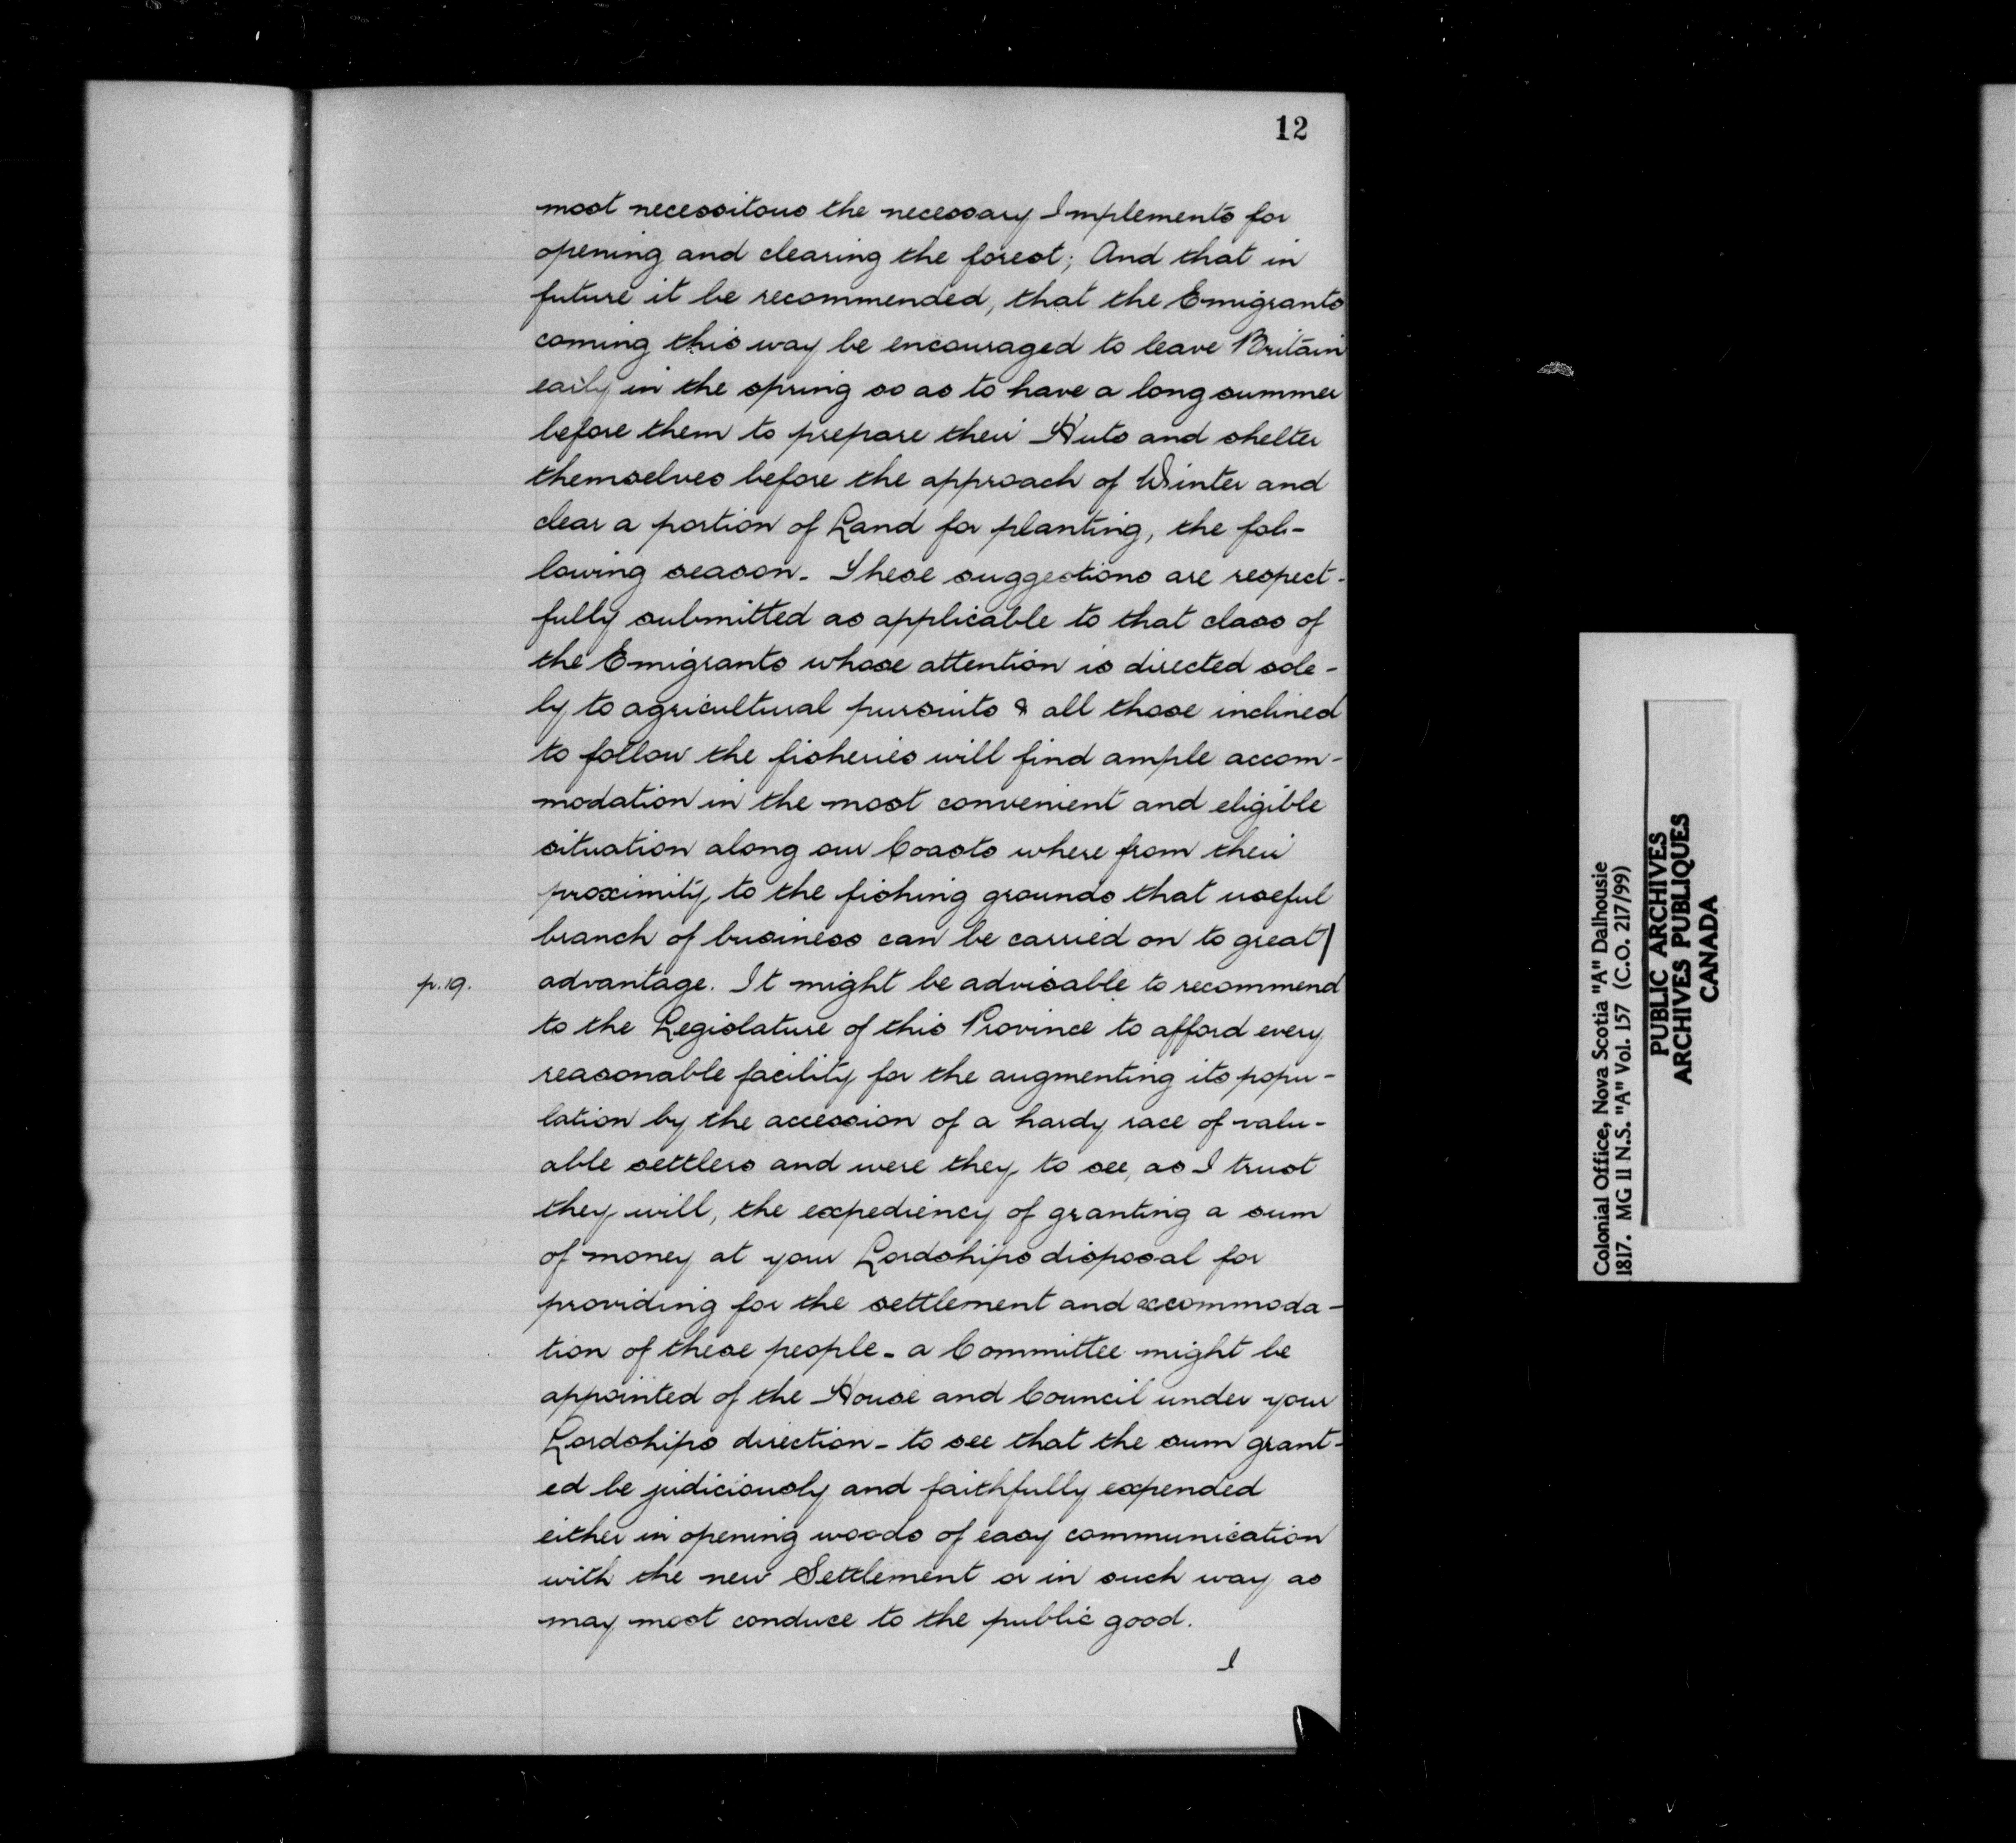 12
most necessitous the necessary Implements for
opening and clearing the forest; And that in
future it be recommended, that the Emigrants
coming this way be encouraged to leave Britain
early in the spring so as to have a long summer
before them to prepare their Huts and shelter
themselves before the approach of Winter and
clear a portion of Land for planting, the fol-
lowing season. These suggestions are respect-
fully submitted as applicable to that class of
the Emigrants whose attention is directed sole-
ly to agricultural pursuits & all those inclined
to follow the fisheries will find ample accom-
modation in the most convenient and eligible
situation along our Coasts where from their
proximity to the fishing grounds that useful
branch of business can be carried on to great/
p. 19. advantage. It might be advisable to recommend
to the Legislature of this Province to afford every
reasonable facility for the augmenting its popu-
lation by the accession of a hardy race of valu-
able settlers and were they to see, as I trust
they will, the expediency of granting a sum
of money at your Lordships disposal for
providing for the settlement and accommoda-
tion of these people - a Committee might be
appointed of the House and Council under your
Lordships direction - to see that the sum grant-
ed be judiciously and faithfully expended
either in opening woods of easy communication
with the new Settlement or in such way as
may most conduce to the public good.
I
Colonial Office, Nova Scotia "A" Dalhousie
1817. MG 11 N.S. "A" Vol. 157 (C.O. 217/99)
PUBLIC ARCHIVES
ARCHIVES PUBLIQUES
CANADA